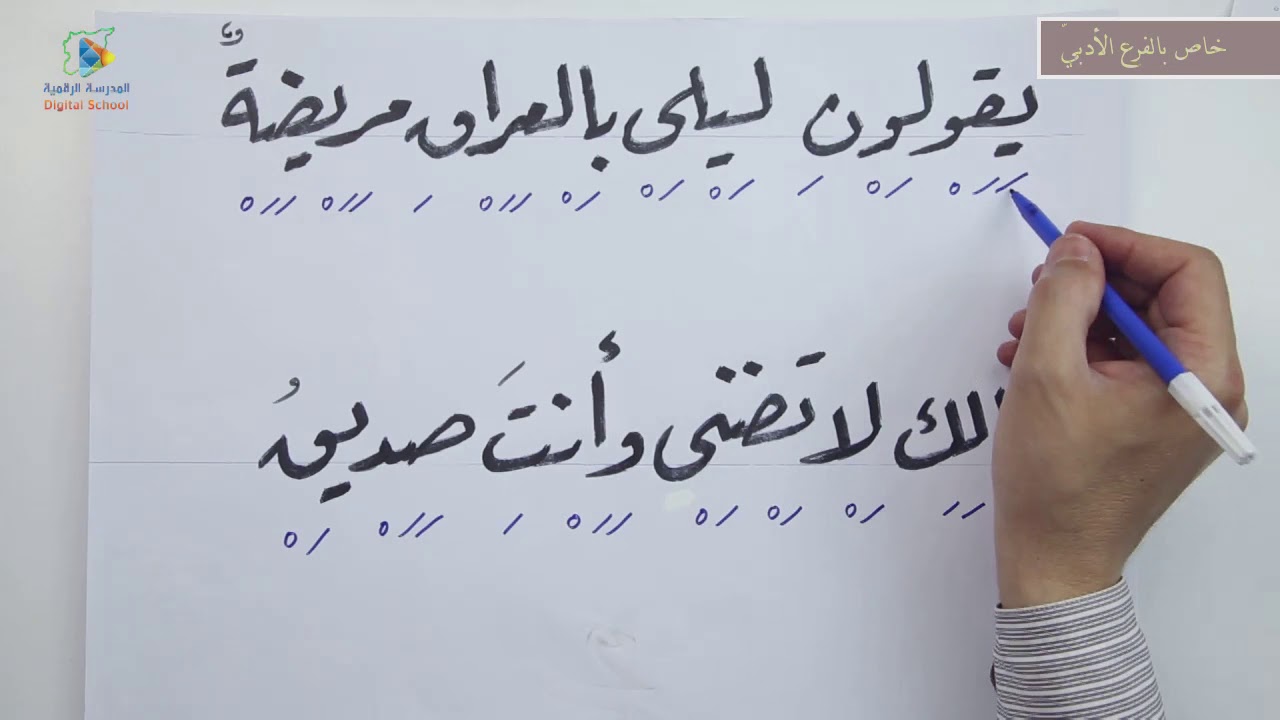 خاص بالفرع الأدبيّ
المدرسة الرقمية
Digital School
يقولون ليلى بالعراق مريضةٌ
لك لا تَضنى وأنتَ صديقُ